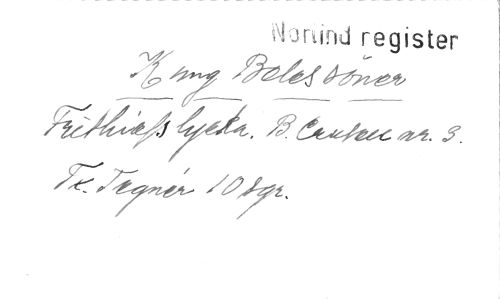 Norlind register
Kung Beles söner
Frithiofs lycka. B. Crusell nr. 3.
Tx. Tegnér 10 sgr.